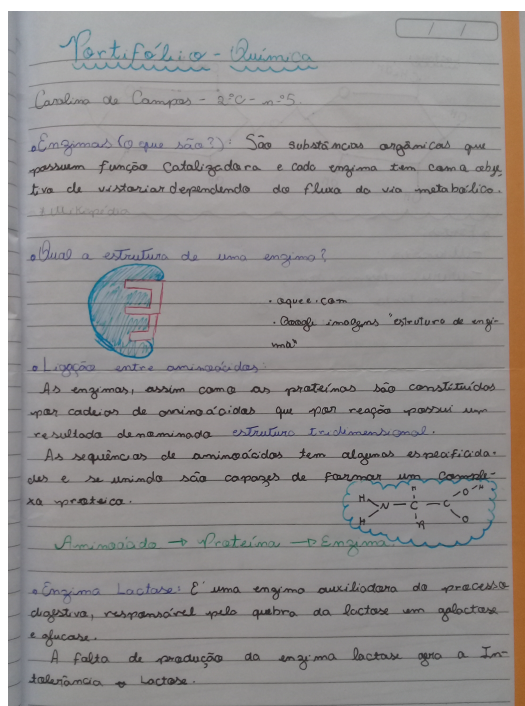 Portifólio - Química
Carolina de Campos - 2ºC - nº5.
Enzimas (o que são?): São substâncias orgânicas que
possuem função Catalizadora e cada enzima tem como obje
tivo de vistoriar dependendo do fluxo da via metabólica.
Wikipédia
Qual a estrutura de uma enzima?
E
. aquee.com
. Google imagens "estrutura de enzi-
ma"
Ligação entre aminoácidos:
As enzimas, assim como as proteínas são constituídas
por cadeias de aminoácidos que por reação possui um
resultado denominado estrutura tridimensional.
As sequências de aminoácidos tem algumas especificida-
des e se unindo são capazes de formar um comple-
xo proteico.
H H N C C O H O R
Aminoácido → Proteína → Enzima
Enzima Lactase: É uma enzima auxiliadora do processo
digestivo, responsável pela quebra da lactose em galactose
e glucose.
A falta de produção da enzima lactase gera a In-
tolerância a Lactose.